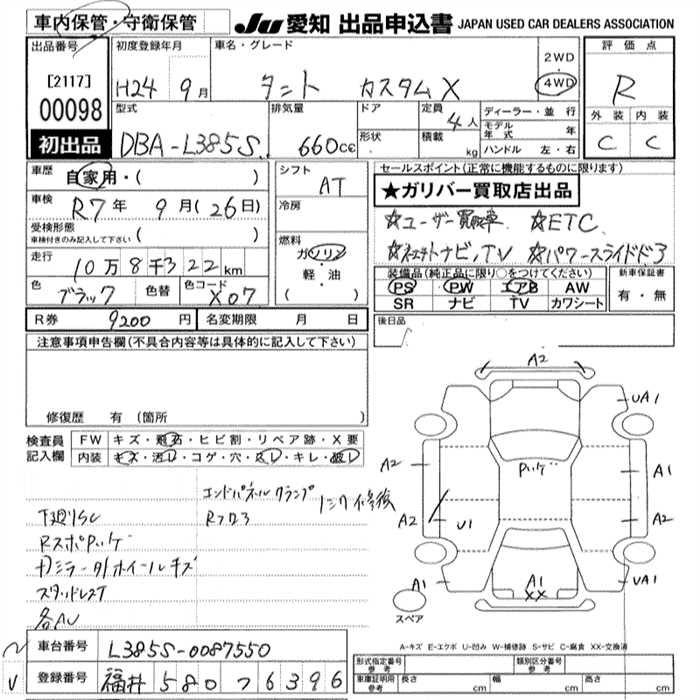 車内保管・守衛保管
JU 愛知 出品申込書 JAPAN USED CAR DEALERS ASSOCIATION
出品番号
[2117]
00098
初出品
初度登録年月
H24 9月
車名・グレード
タント カスタムX
2WD
4WD
評価点
R
外装 内装
C C
型式
DBA-L385S
排気量
660cc
ドア
形状
定員
4人
積載
kg
ディーラー・並行
モデル年式 年
ハンドル 左・右
車歴
自家用・( )
車検
R7年 9月(26日)
受検形態
車検付きのみ記入して下さい ( )
走行
10万8千322km
色
ブラック
色替
色コード
X07
シフト
AT
冷房
燃料
ガソリン
・軽・油
( )
R券 9200円
名変期限 月 日
セールスポイント(正常に機能するものに限ります)
★ガリバー買取店出品
☆ユーザー買取車 ☆ETC
☆社外ナビ,TV ☆パワースライドドア
装備品(純正品に限り○をつけてください)
PS PW エアB AW
SR ナビ TV カワシート
新車保証書
有・無
後日品
注意事項申告欄(不具合内容等は具体的に記入して下さい)
修復歴 有 (箇所 )
検査員記入欄
FW キズ・飛石・ヒビ割・リペア跡・X要
内装 キズ・汚れ・コゲ・穴・スレ・キレ・破レ
エンドパネルクランプ
下廻りSC
Rフロア
Rスポ
ドアミラー ホイールキズ
スタッドレスT
各AU
A2
UA1
A2
A1
A2
U1
A2
A1
A1
XX
UA1
スペア
A-キズ E-エクボ U-凹み W-補修跡 S-サビ C-腐食 XX-交換済
車台番号 L385S-0087550
登録番号 福井 580 ナ 6396
形式指定番号 参考
類別区分番号 参考
車庫証明用 参考
長さ cm
幅 cm
高さ cm